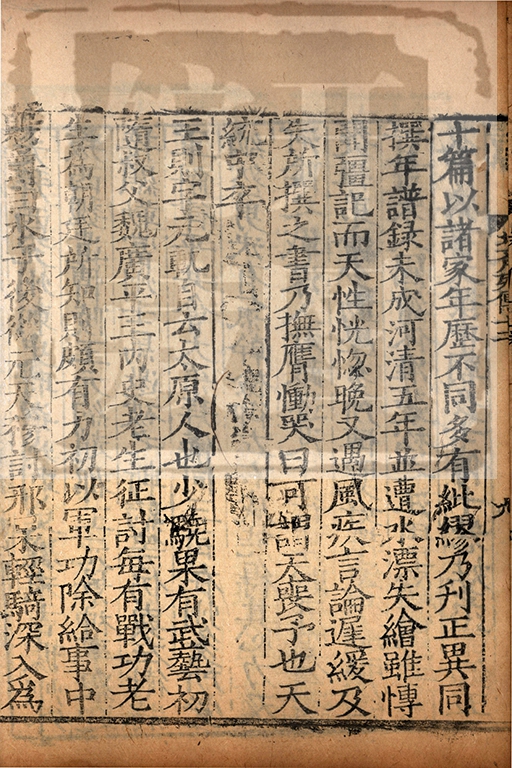 十篇以諸家年歷不同多有紕繆乃刊正異同
撰年譜録未成河清五年並遭水漂失繪雖愽
聞彊記而天性恍惚晚又遇風疾言論遲緩及
失所撰之書乃撫膺慟哭曰可謂天喪予也天
統中卒
王則字元軌自云太原人也少驍果有武藝初
隨叔父魏廣平王內史老生征討每有戰功老
生爲朝廷所知則頗有力初以軍功除給事中
後從元天穆討邢杲輕騎深入爲